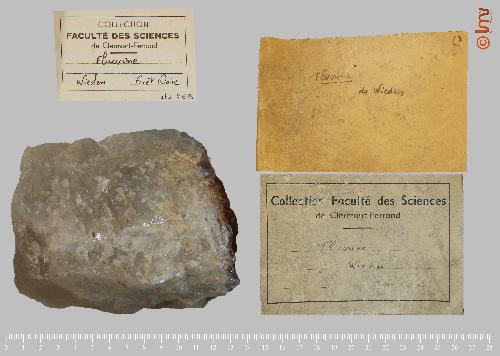 COLLECTION
FACULTÉ DES SCIENCES
de Clermont-Ferrand
Fluorine
Wieden Forêt Noire
Fluorine
de Wieden
Collection Faculté des Sciences
de Clermont-Ferrand
Fluorine
Wieden
lmv
0 1 2 3 4 5 6 7 8 9 10 11 12 13 14 15 16 17 18 19 20 21 22 23 24 25 26 27 28